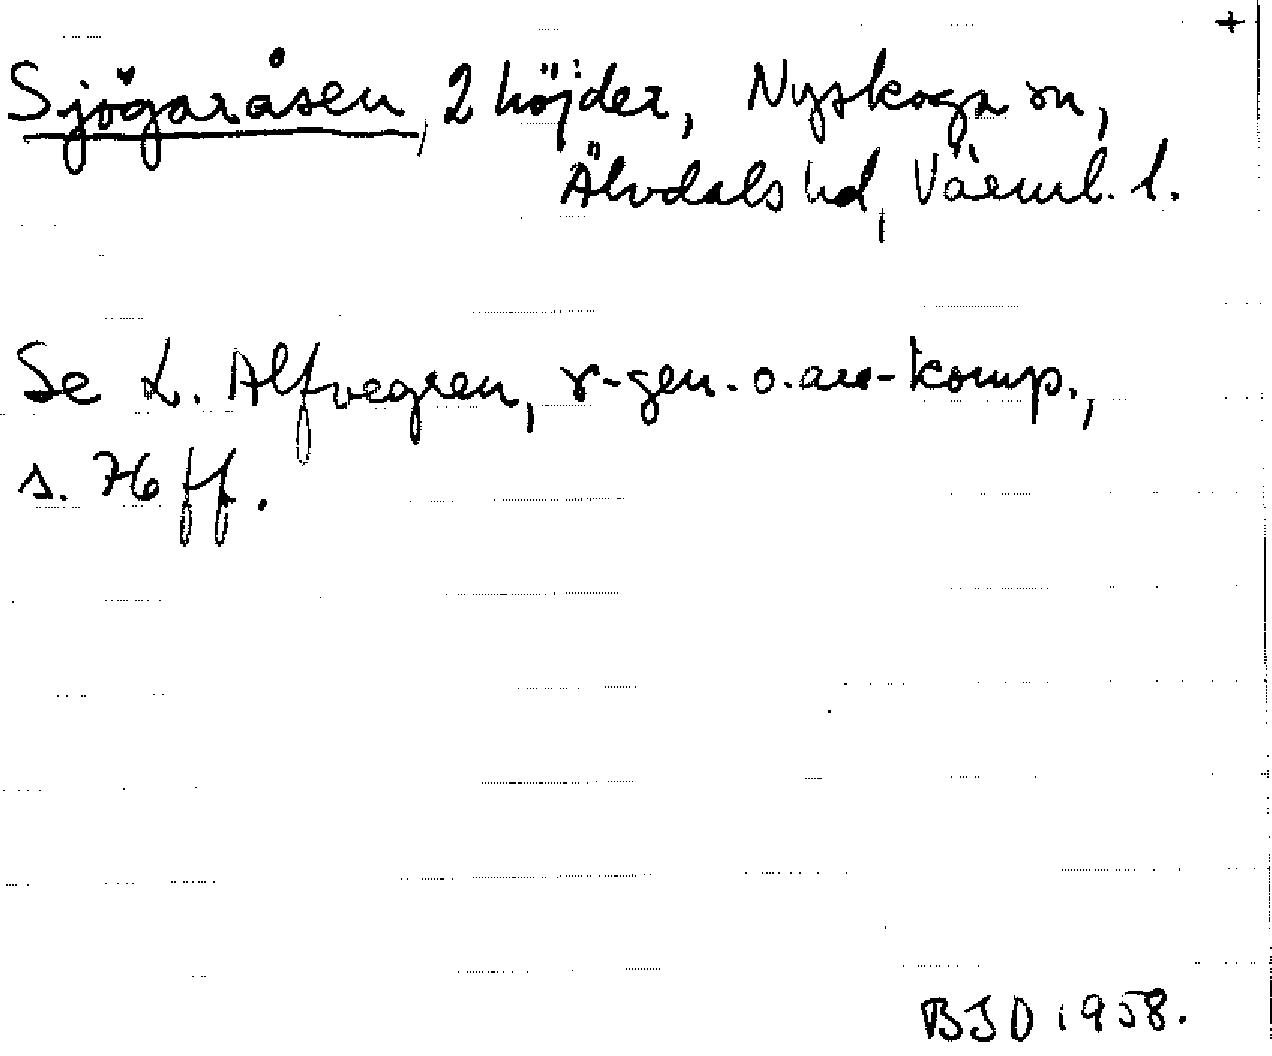 +
Sjögaråsen, 2 höjder, Nyskoga sn,
Älvdals hd, Värml. l.
Se L. Alfvegren, r-gen. o. are-komp.,
s. 76 ff.
BJD 1958.